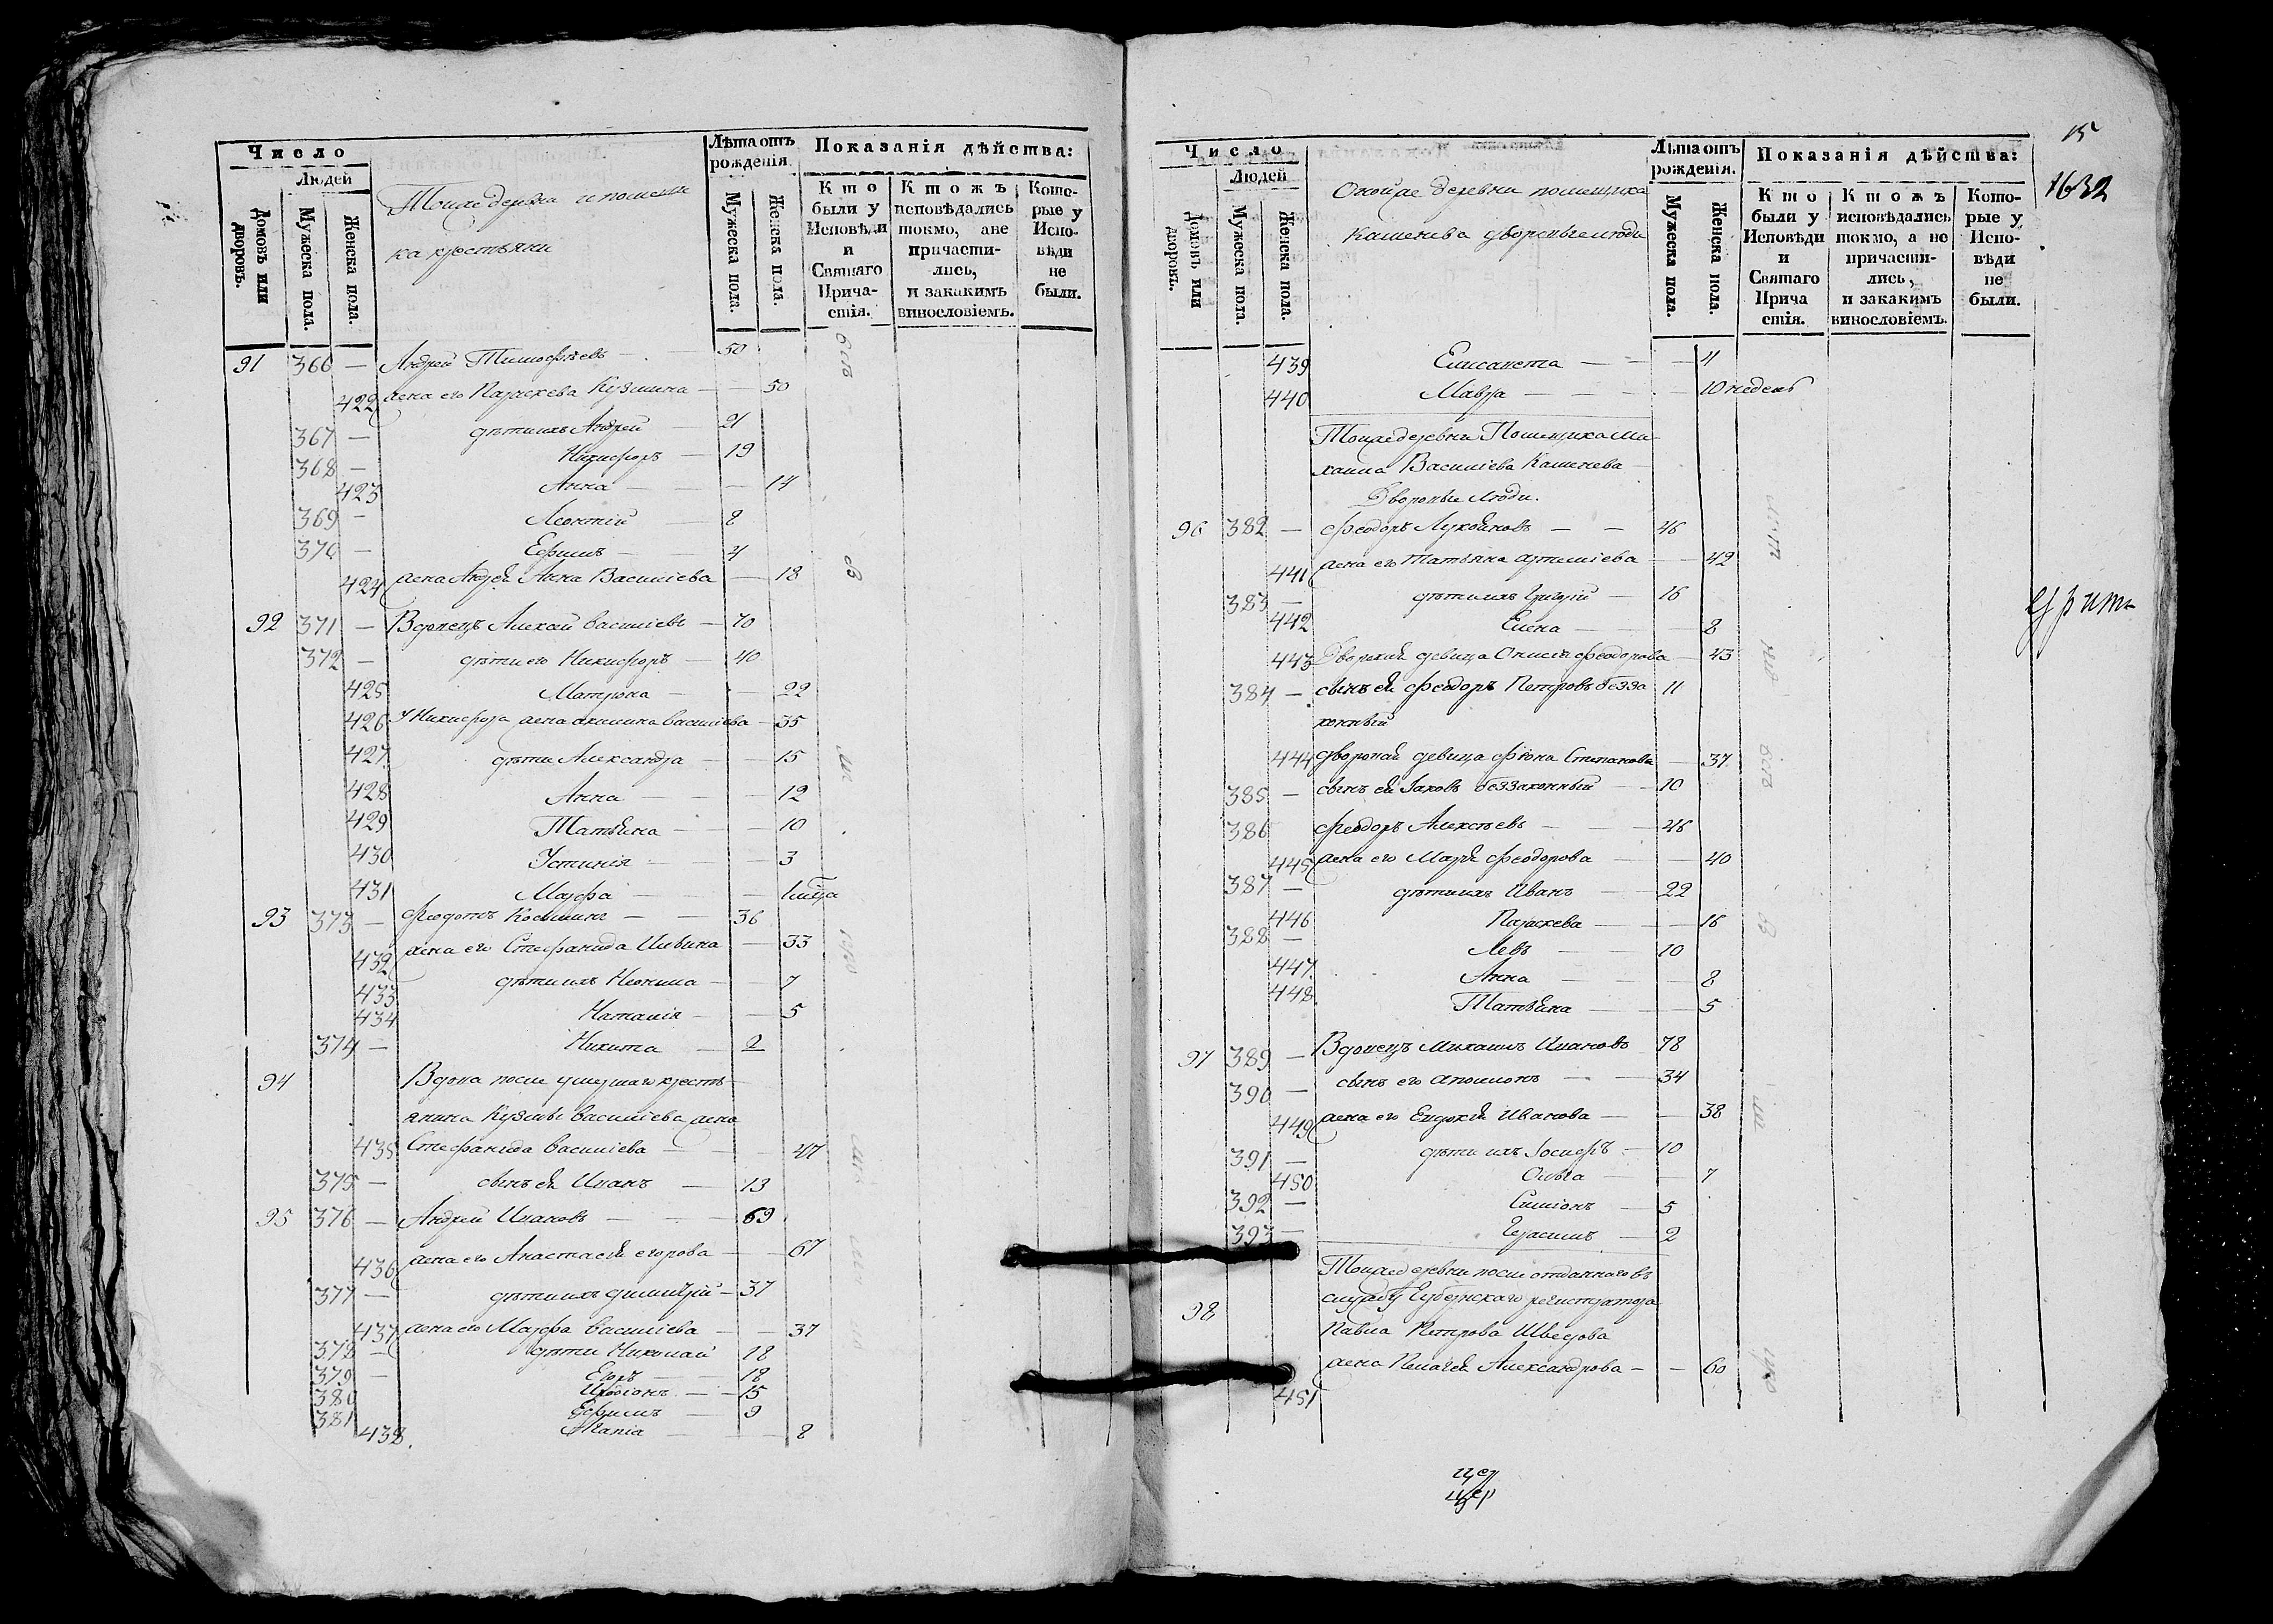 Число
Людей
Домовъ или дворовъ.
Мужеска пола.
Женска пола.
Тоиже деревни и помещи
ка крестьяни
Лѣта отъ рожденія.
Мужеска пола.
Женска пола.
Показанія дѣйства:
Кто были у Исповѣди и Святаго Прича-стія.
Ктожъ исповѣдались токмо, а не причасти-лись, и закакимъ винословіемъ.
Кото-рые у Испо-вѣди не были.
91 366 — Андрей Тимофѣевъ — 50
422 жена его Параскева Кузмина — — 50
367 — дѣти ихъ Андрей — 21
368 — Никифоръ — 19
423 Анна — — 14
369 — Леонтий — 8
370 — Ефимъ — 4
424 жена Андрей Анна Василиева — 18
92 371 — Вдовецъ Алехай Василиевъ — 70
372 — дѣти его Никифоръ — 40
425 Матрона — — 22
426 У Никифора жена акилина василиева — 35
427 дѣти Александра — — 15
428 Анна — — 12
429 Татьяна — — 10
430 Устинія — — 3
431 Марфа — —
93 373 — Феодотъ Косминъ — — 36
432 жена его Стефанида Иивина — 33
433 дѣти ихъ Неонила — — 7
434 Наталія — — 5
374 — Никита — 2
94 Вдова после умершаго кресть-
янина Кузмы василиева жена
435 Стефанида василиева — — 47
375 — сынъ ея Иванъ — 13
95 376 — Андрей Ивановъ — — 69
436 жена его Анастасія егорова — — 67
377 — дѣти ихъ димитрій — 37
437 жена его Марфа василиева — — 37
378 — дѣти Николай 18
379 — Егоръ — 18
380 Иродіонъ — 15
381 Ефимъ — 9
438. — — 8
15
1632
Число
Людей
Домовъ или дворовъ.
Мужеска пола.
Женска пола.
Онойже деревни помещика
Кашенева дворовые люди
Лѣта отъ рожденія.
Мужеска пола.
Женска пола.
Показанія дѣйства:
Кто были у Исповѣди и Святаго Прича стія.
Ктожъ исповѣдались токмо, а не причасти-лись, и закакимъ винословіемъ.
Кото-рые у Испо-вѣди не были.
439 Елисавета — — — 4
440 Мавра — — — 10 недель
Тоиже деревни Помещика Ми-
хаила Василіева Кашенева
Дворовые люди.
96 382 — Феодоръ — — 46
441 жена его Татьяна артеміева — — 42
383 — дѣти ихъ Григорій — 16
442 Елена — — 8
443 Дворовая девица Онисія феодорова — 43
384 — сынъ ея Феодоръ Петровъ безза 11
конный
444 дворовай девица Фіона Степанова — 37
385 — сынъ ея Іаковъ беззаконный — 10
386 Феодоръ Алексѣевъ — — 46
445 жена его Марія феодорова — — 40
387 — дѣти ихъ Иванъ — 22
446 Параскева — — 16
388 — Левъ — 10
447 Анна — — 8
448. Татьяна — — 5
97 389 — Вдовецъ Михаилъ Ивановъ 78
390 — сынъ его аполлонъ — — 34
449 жена его Евдокія Иванова — — 38
391 — дѣти ихъ Іосифъ — 10
450 Ольга — — 7
392 — Симіонъ — 5
393 — Герасимъ — 2
Тоиже деревни после отданнаго въ
службу Губернскаго регистратора
98 Павла Петрова Шведова
451 жена Пелагея Александрова — — 60
цер
цер